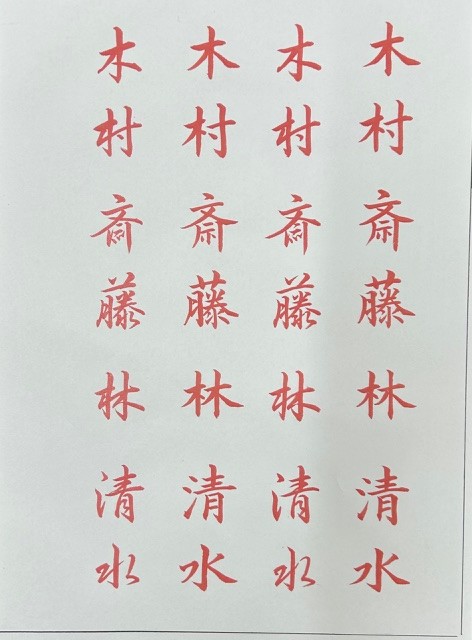 木村 斎藤 林 清水
木村 斎藤 林 清水
木村 斎藤 林 清水
木村 斎藤 林 清水